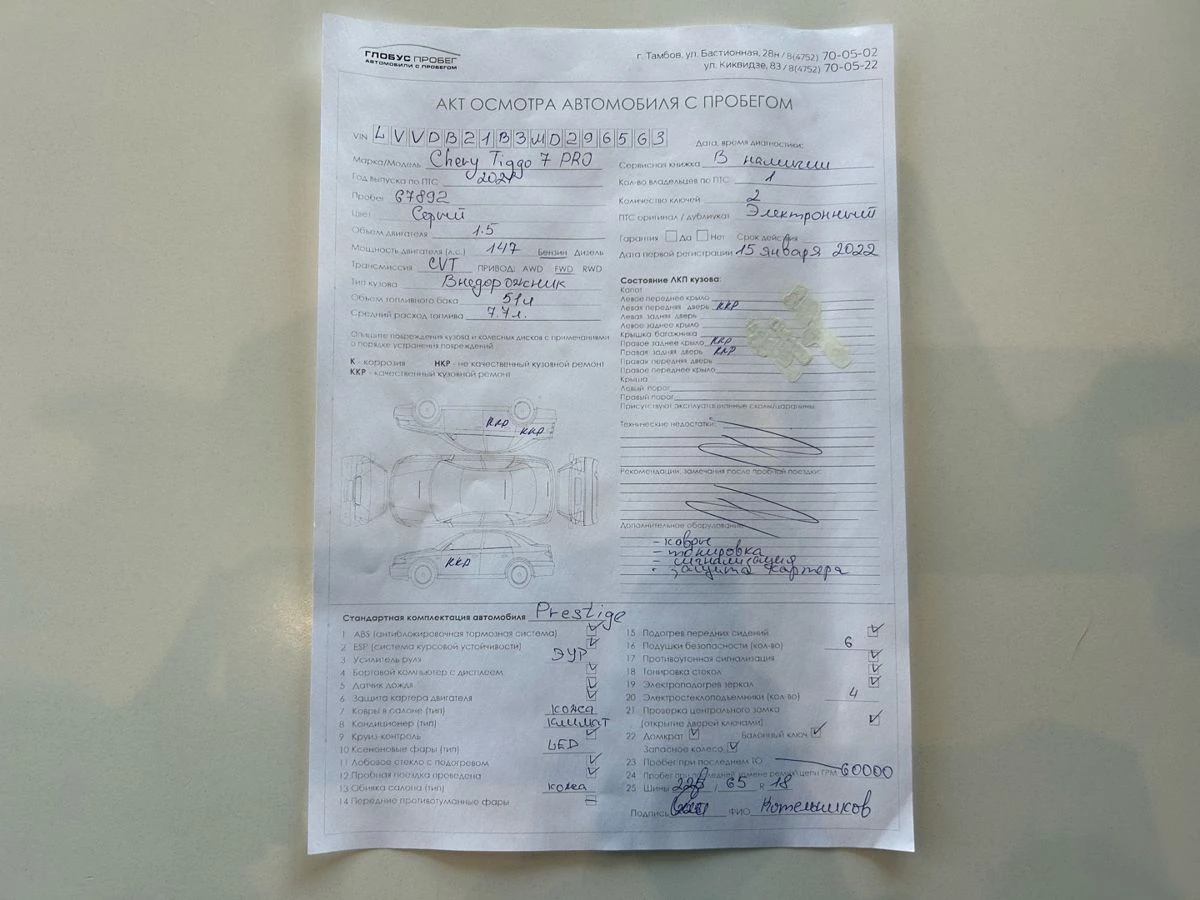 ГЛОБУС ПРОБЕГ
АВТОМОБИЛИ С ПРОБЕГОМ
г. Тамбов, ул. Бастионная, 28н / 8(4752) 70-05-02
ул. Киквидзе, 83 / 8(4752) 70-05-22
АКТ ОСМОТРА АВТОМОБИЛЯ С ПРОБЕГОМ
VIN LVVDB21B3MD296563
Марка/Модель Chery Tiggo 7 PRO
Год выпуска по ПТС 2021
Пробег 67892
Цвет Серый
Объем двигателя 1.5
Мощность двигателя (л.с.) 147 Бензин Дизель
Трансмиссия CVT ПРИВОД: AWD FWD RWD
Тип кузова Внедорожник
Объем топливного бака 51л
Средний расход топлива 7.7л.
Опишите повреждения кузова и колесных дисков с примечаниями
о порядке устранения повреждений
К - коррозия НКР - не качественный кузовной ремонт
ККР - качественный кузовной ремонт
ККР
ККР
ККР
Дата, время диагностики:
Сервисная книжка В наличии
Кол-во владельцев по ПТС 1
Количество ключей 2
ПТС оригинал / дубликат Электронный
Гарантия Да Нет Срок действия
Дата первой регистрации 15 января 2022
Состояние ЛКП кузова:
Капот
Левое переднее крыло
Левая передняя дверь ККР
Левая задняя дверь
Левое заднее крыло
Крышка багажника
Правое заднее крыло ККР
Правая задняя дверь ККР
Правая передняя дверь
Правое переднее крыло
Крыша
Левый порог
Правый порог
Присутствуют эксплуатационные сколы/царапины
Технические недостатки:
Рекомендации, замечания после пробной поездки:
Дополнительное оборудование
- ковры
- тонировка
- сигнализация
- защита картера
Стандартная комплектация автомобиля Prestige
1 ABS (антиблокировочная тормозная система)
2 ESP (система курсовой устойчивости)
3 Усилитель руля ЭУР
4 Бортовой компьютер с дисплеем
5 Датчик дождя
6 Защита картера двигателя
7 Ковры в салоне (тип) кожа
8 Кондиционер (тип) климат
9 Круиз-контроль
10 Ксеноновые фары (тип) LED
11 Лобовое стекло с подогревом
12 Пробная поездка проведена
13 Обивка салона (тип) кожа
14 Передние противотуманные фары
15 Подогрев передних сидений
16 Подушки безопасности (кол-во) 6
17 Противоугонная сигнализация
18 Тонировка стекол
19 Электроподогрев зеркал
20 Электростеклоподъемники (кол-во) 4
21 Проверка центрального замка
(открытие дверей ключами)
22 Домкрат Балонный ключ
Запасное колесо
23 Пробег при последнем ТО 60000
24 Пробег при последней замене ремня/цепи ГРМ
25 Шины 225 / 65 R 18
Подпись ФИО Котельников